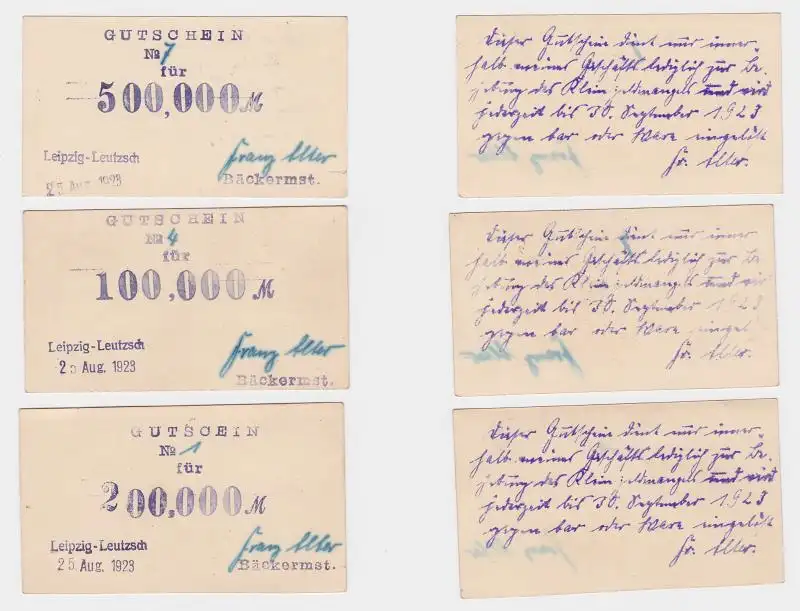 GUTSCHEIN
№ 7
für
500,000 M
Leipzig-Leutzsch
25 Aug. 1923
Franz Alter
Bäckermst.
Dieser Gutschein dient nur inner-
halb meines Geschäfts lediglich zur Be-
hebung des Kleingeldmangels und wird
jederzeit bis 30. September 1923
gegen bar oder Ware eingelöst
Fr. Alter.
GUTSCHEIN
№ 4
für
100,000 M
Leipzig-Leutzsch
25 Aug. 1923
Franz Alter
Bäckermst.
Dieser Gutschein dient nur inner-
halb meines Geschäfts lediglich zur Be-
hebung des Kleingeldmangels und wird
jederzeit bis 30. September 1923
gegen bar oder Ware eingelöst
Fr. Alter.
GUTSCHEIN
№ 1
für
200,000 M
Leipzig-Leutzsch
25 Aug. 1923
Franz Alter
Bäckermst.
Dieser Gutschein dient nur inner-
halb meines Geschäfts lediglich zur Be-
hebung des Kleingeldmangels und wird
jederzeit bis 30. September 1923
gegen bar oder Ware eingelöst
Fr. Alter.